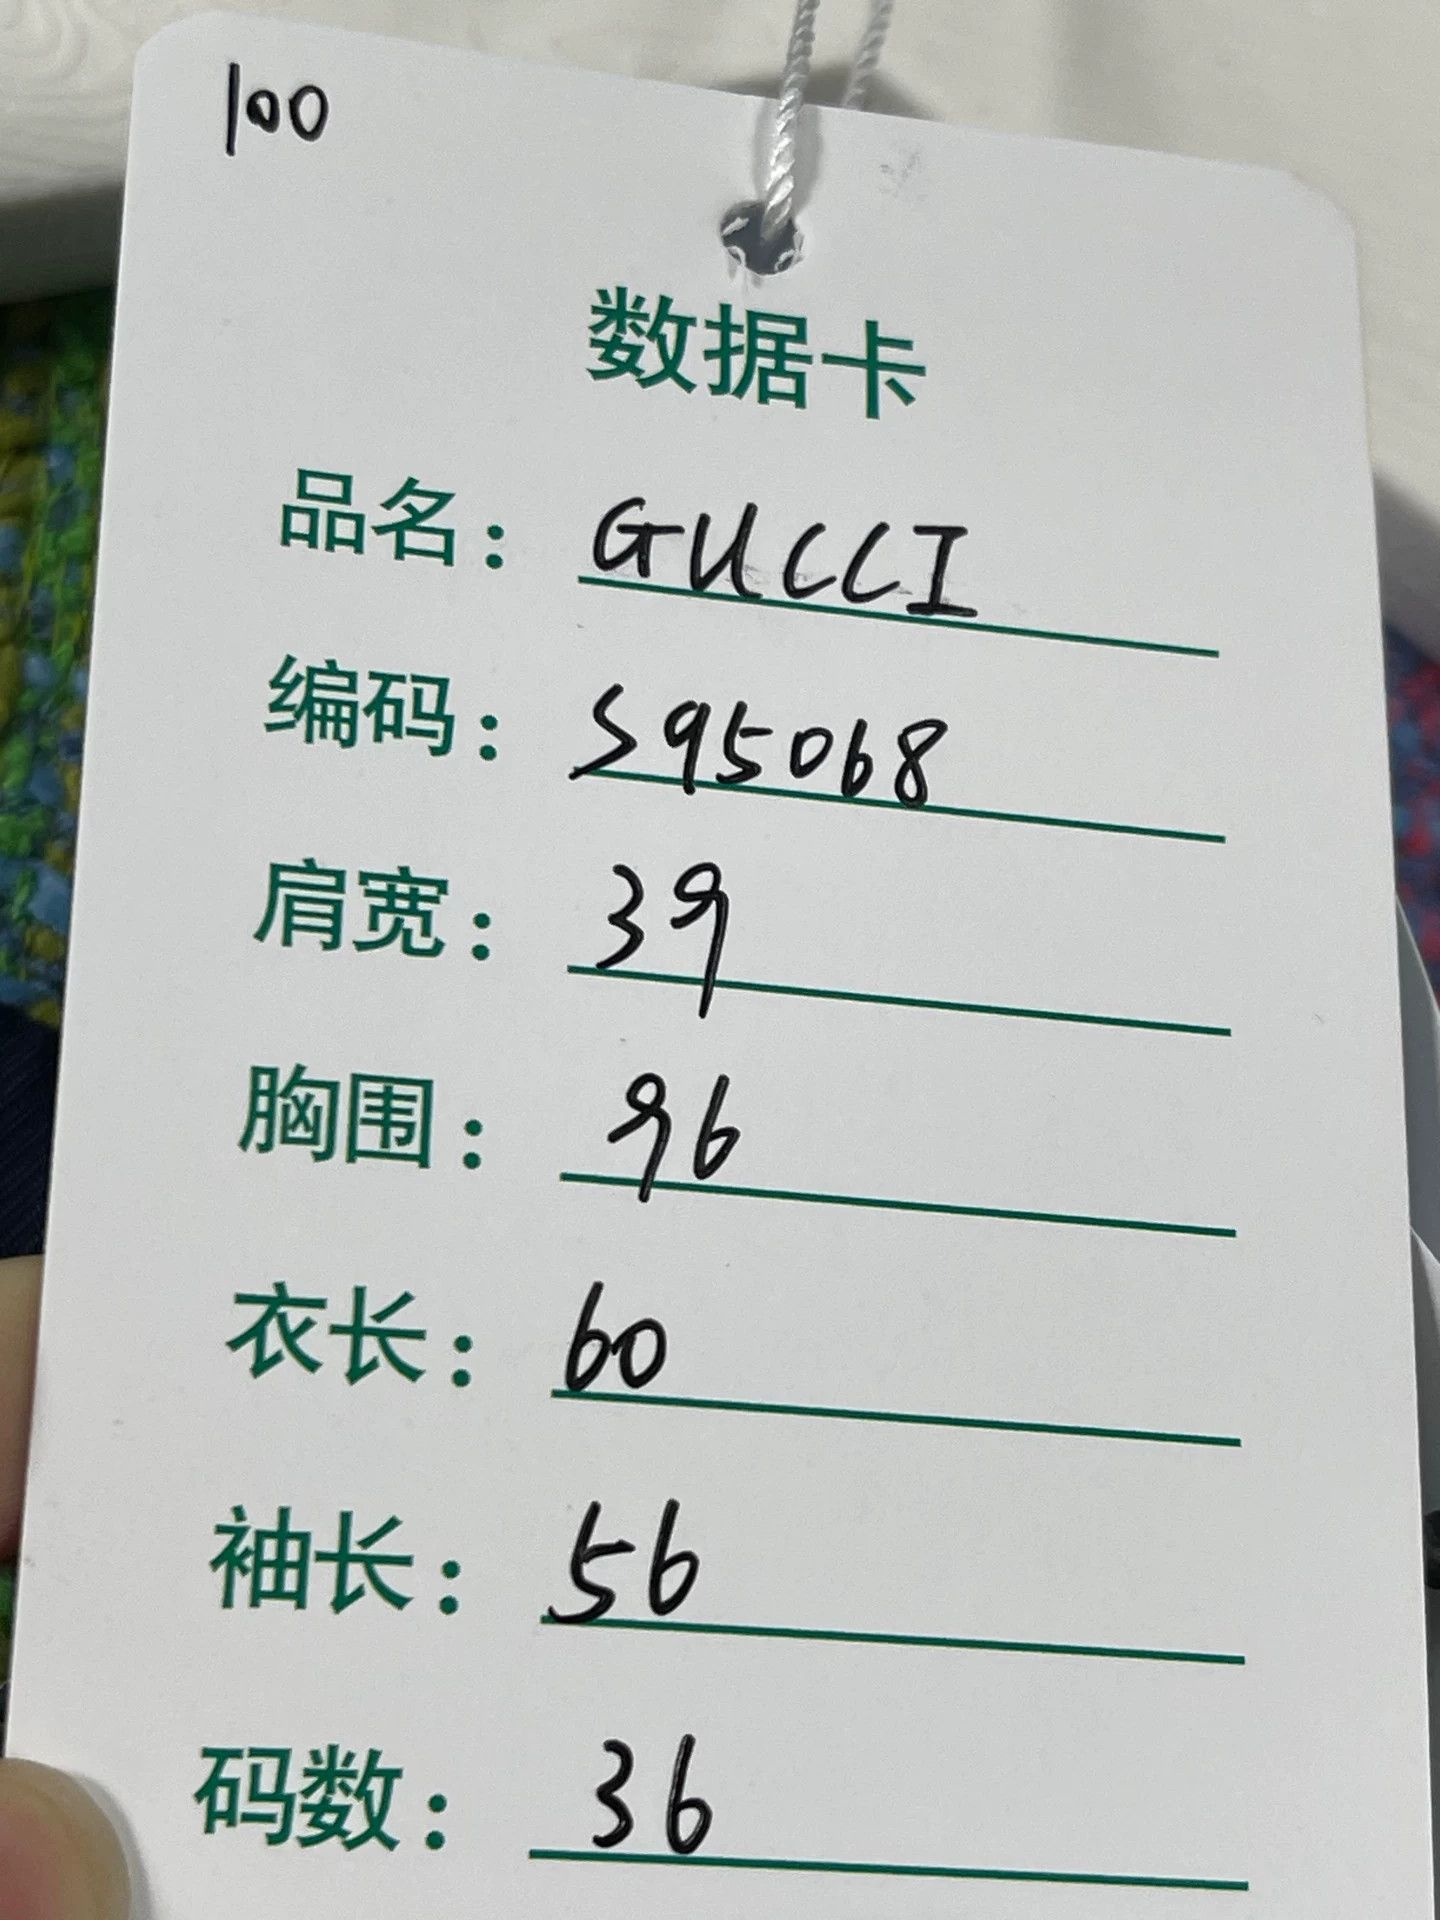 100
数据卡
品名：GUCCI
编码：S95068
肩宽：39
胸围：96
衣长：60
袖长：56
码数：36